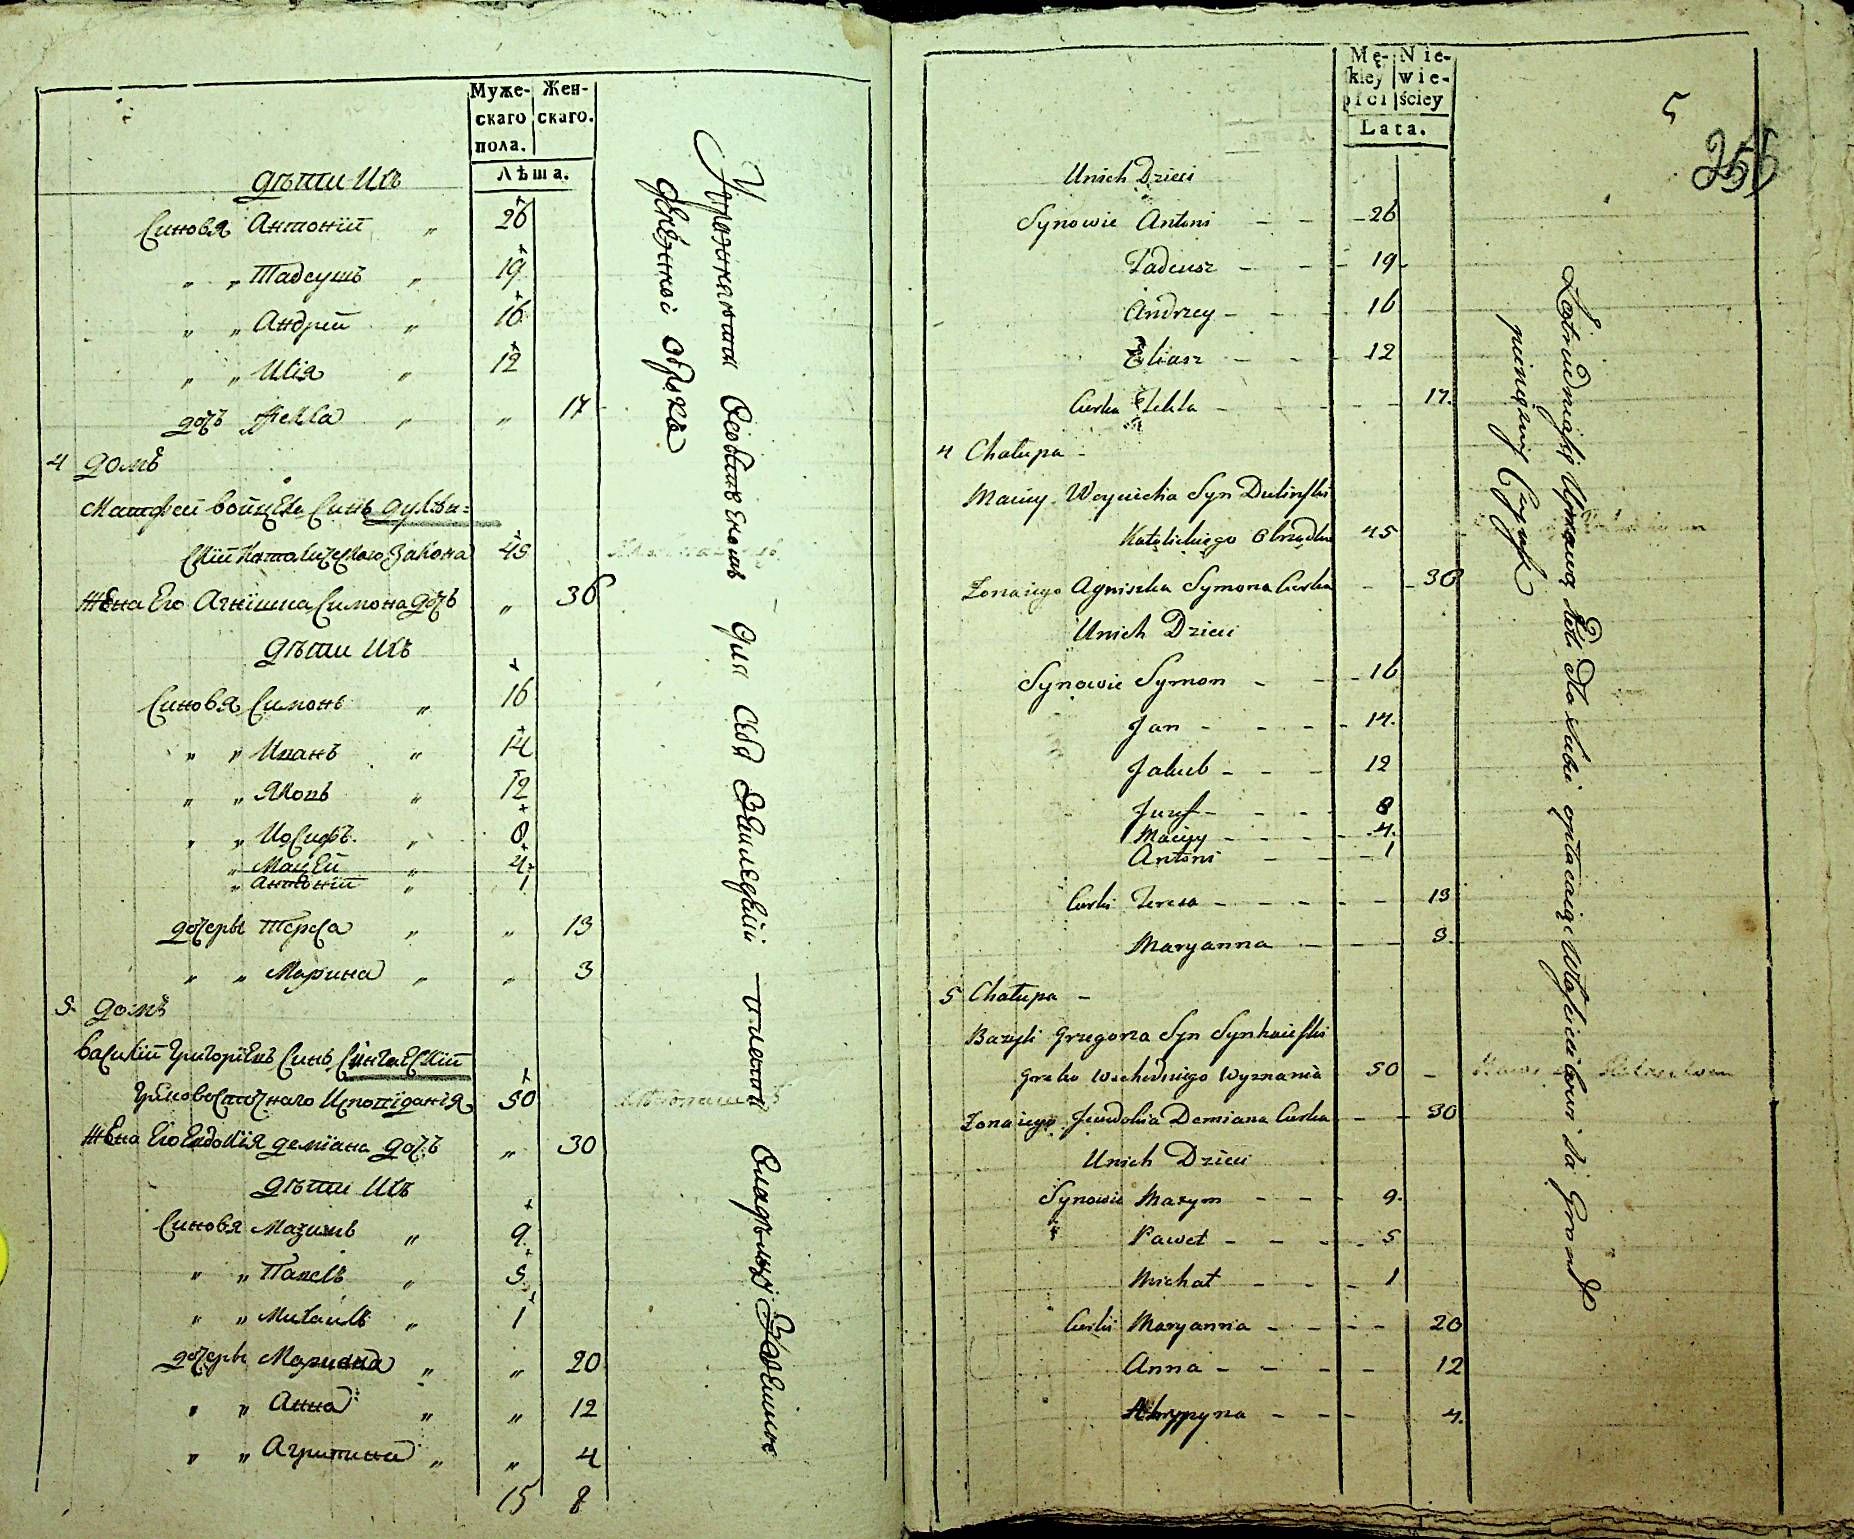 Муже-
скаго
пола.
Жен-
скаго.
Лѣта.
Дѣти Ихъ
Синовя Антоній " 26
" " Тадеушъ " 19
" " Андрей " 16
" " Илія " 12
дочь Фекла " " 17
4 Домъ
Матфей войцеха Синъ Дулѣн=
скій Католическаго Закона 45
Жена Его Агнишка Симона дочь " 36
Дѣти Ихъ
Синовя Симонъ " 16
" " Иванъ " 14
" " Яковъ " 12
" " Иосифъ " 8
" Мацей " 4
" Антоній " 1
дочеры Тереса " " 13
" " Марина " " 3
5 Домъ
Василий Григорыевъ Синъ
Грековосточнаго Исповѣданія 50
Жена Его Евдокія деміана дочь " 30
Дѣти Ихъ
Синовя Мазимъ " 9
" " Павелъ " 5
" " Михаилъ " 1
дочеры Марина " " 20
" " Анна " " 12
" " Агрипина " " 4
15 8
Упражняются для себя платя
денежной оброкъ
Mę-
skiey
płci
Nie-
wie-
ściey
Lata.
5
255
Unich Dzieci
Synowie Antoni - - 26
Tadeusz - - 19
Andrzey - - 16
Eliasz - - 12
Curka Tekla - - 17.
4 Chałupa -
Maciey Woyciecha Syn Dulinski
Katolickiego Obrządku 45
Zona iego Agniszka Symona Curka - - 36
Unich Dzieci
Synowie Symon - - 16
Jan - - - 14.
Jakub - - - 12
Juzef - - - 8
Maciey - - - 4.
Antoni - - - 1
Curki Teresa - - - - 13
Maryanna - - - 3.
5 Chałupa -
Bazyli Grzegorza Syn
Greko Wschodniego Wyznania 50 -
Zona iego Jewdokia Demiana Curka - - 30
Unich Dzieci
Synowie Maxym - - - 9.
Paweł - - - 5
Michał - - - 1
Curki Maryanna - - - - 20
Anna - - - - 12
Ahrypyna - - - 4.
Zatrudniaią się Uprawą Roli dla siebie opłacaiąc
pieniężny Czynsz